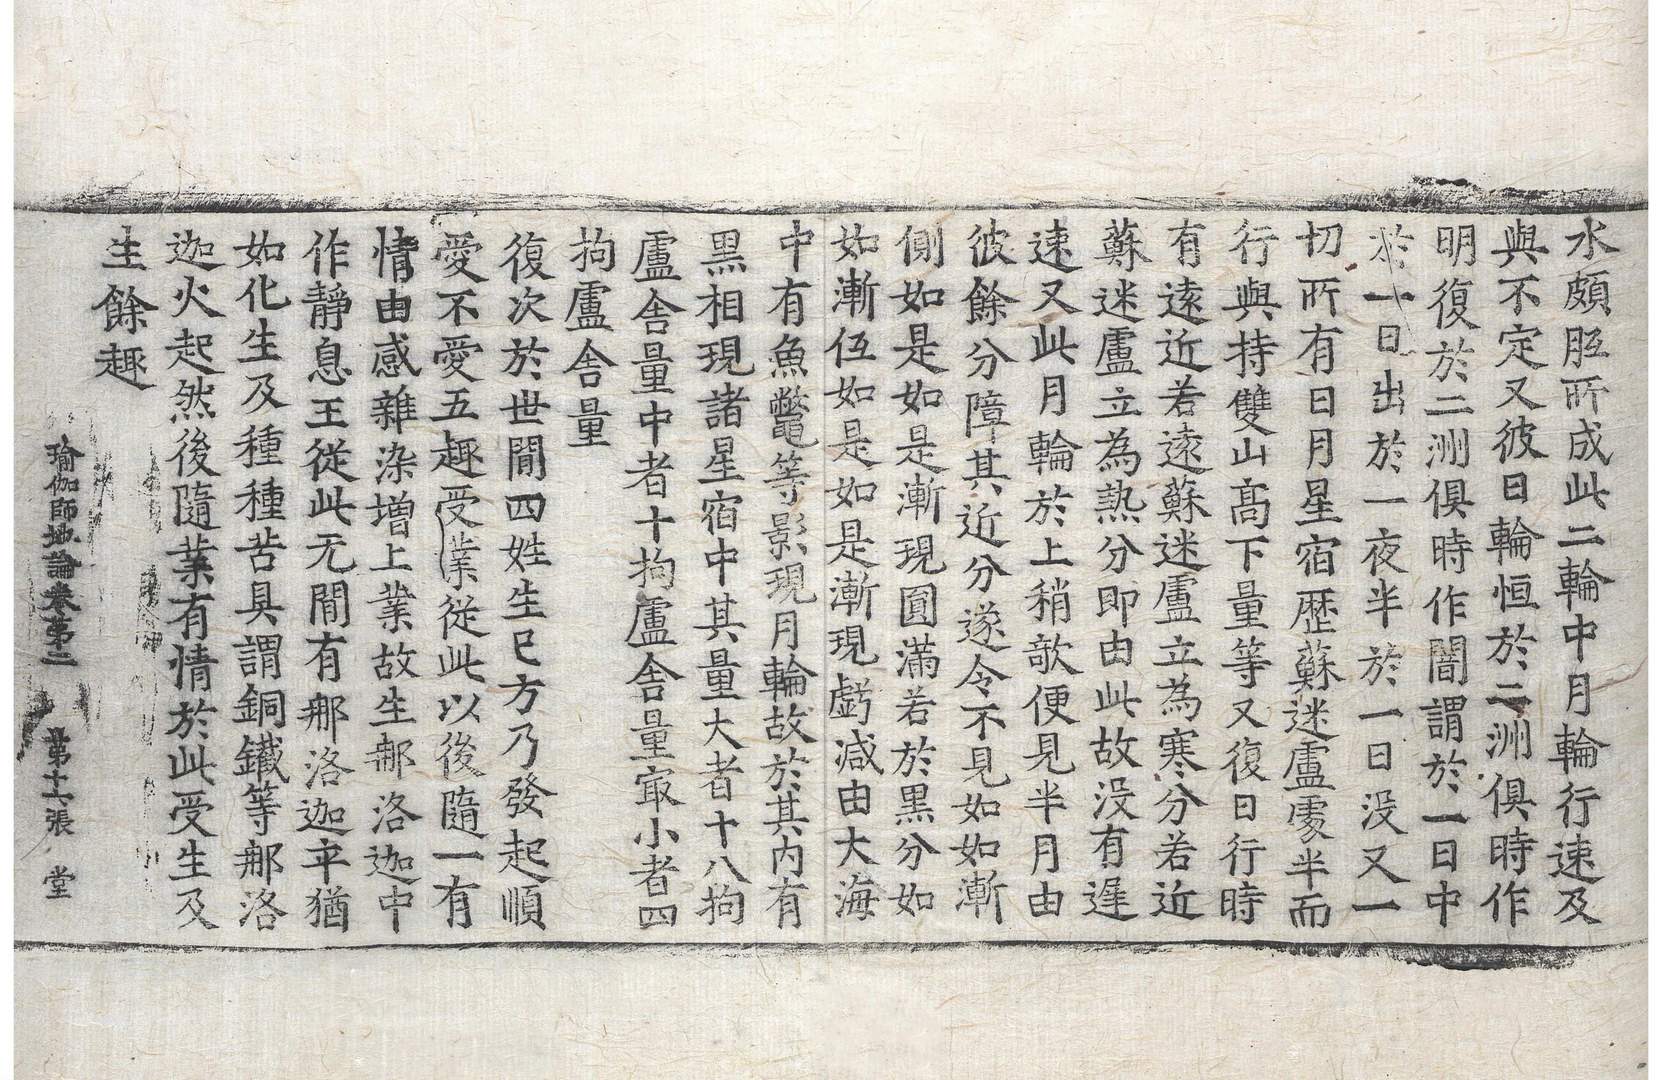 水頗胝所成此二輪中月輪行速及
與不定又彼日輪恒於二洲俱時作
明復於二洲俱時作闇謂於一日中
於一日出於一夜半於一日没又一
切所有日月星宿歷蘇迷盧處半而
行與持雙山高下量等又復日行時
有遠近若遠蘇迷盧立為寒分若近
蘇迷盧立為熱分即由此故没有遲
速又此月輪於上稍欹便見半月由
彼餘分障其近分遂令不見如如漸
側如是如是漸現圓滿若於黑分如
如漸伍如是如是漸現虧减由大海
中有魚鼈等影現月輪故於其内有
黑相現諸星宿中其量大者十八拘
盧舍量中者十拘盧舍量㝡小者四
拘盧舍量
復次於世間四姓生已方乃發起順
愛不愛五趣受業從此以後隨一有
情由感雜染增上業故生那洛迦中
作靜息王從此无間有那洛迦卒猶
如化生及種種苦具謂銅鐵等那洛
迦火起然後隨業有情於此受生及
生餘趣
瑜伽師地論卷第二 第十一張 堂